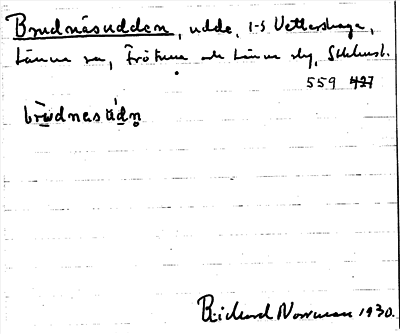 Brudnäsudden, udde, 1-5 Vettershaga,
Länna sn, Frötuna och Länna skg, Sthlms l.
559 427
brùdnesúdn̥
Richard Norrman 1930.